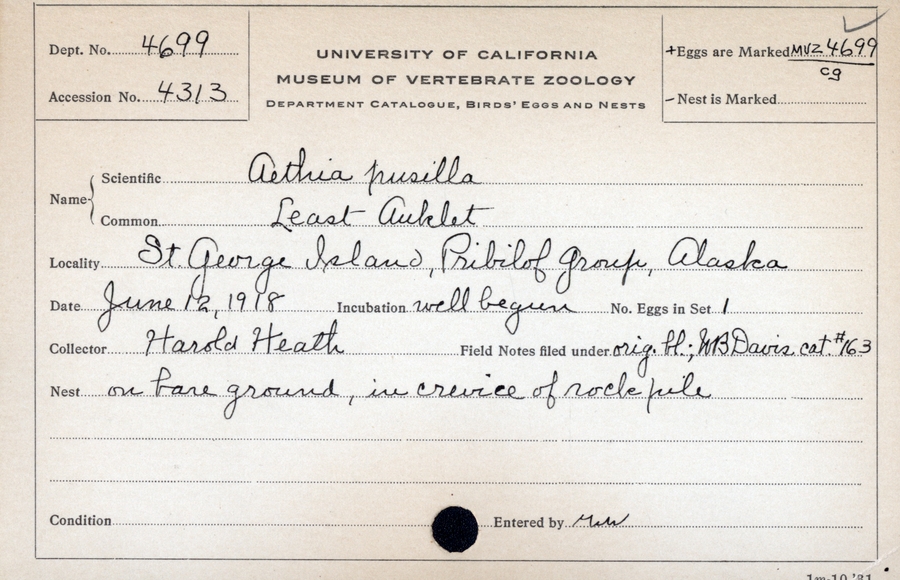 Dept. No. 4699
Accession No. 4313
UNIVERSITY OF CALIFORNIA
MUSEUM OF VERTEBRATE ZOOLOGY
DEPARTMENT CATALOGUE, BIRDS' EGGS AND NESTS
+Eggs are Marked MVZ 4699
cg
-Nest is Marked
Name
Scientific Aethia pusilla
Common Least Auklet
Locality St. George Island, Pribilof Group, Alaska
Date June 12, 1918 Incubation well begun No. Eggs in Set 1
Collector Harold Heath Field Notes filed under orig. bl.; WB Davis cat. #163
Nest on bare ground, in crevice of rock pile
Condition Entered by
1m-10,'31